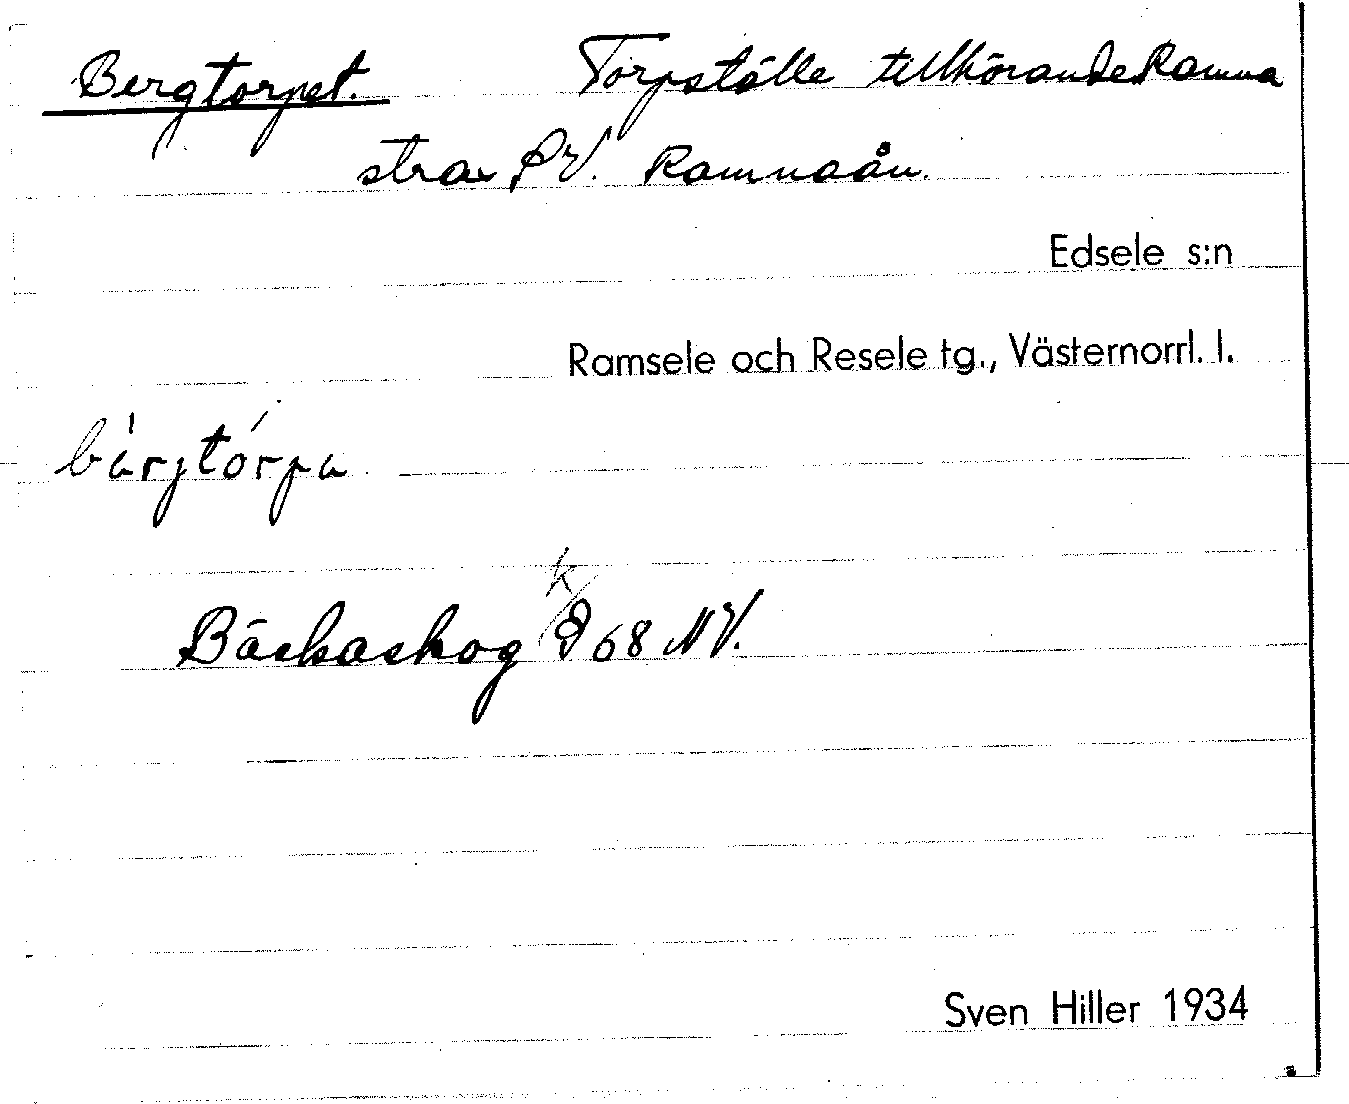 Bergtorpet. Torpställe tillhörande Ramna
strax SV. Ramnaån.
Edsele s:n
Ramsele och Resele tg., Västernorrl. l.
bärjtórpa
k
Bäckaskog 868 NV.
Sven Hiller 1934